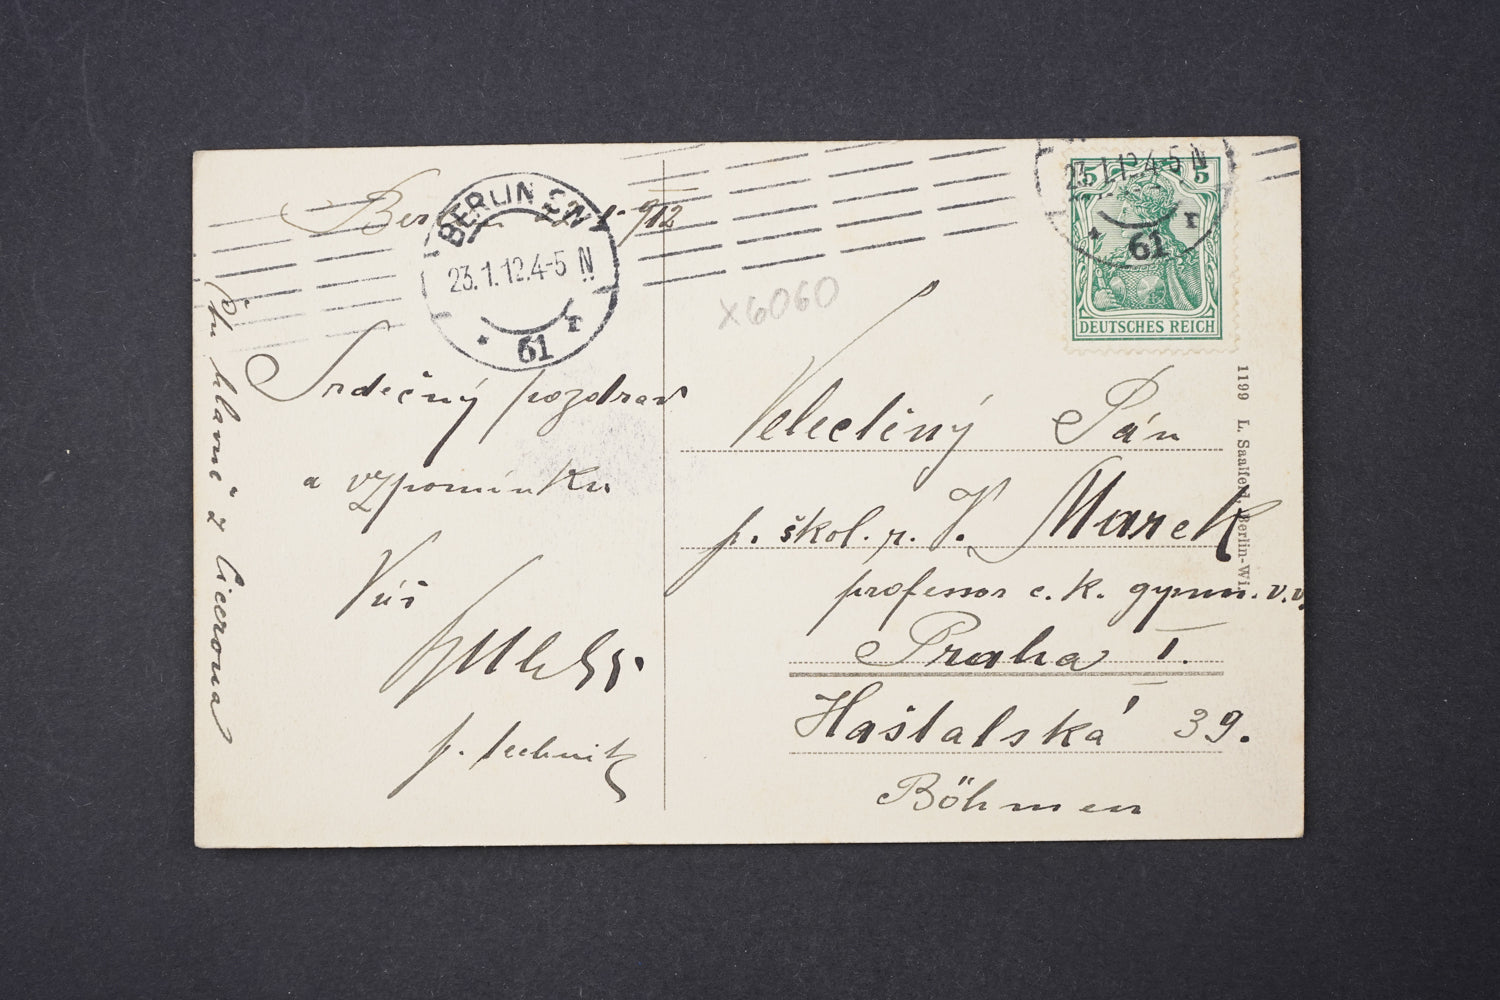 BERLIN SW
23.1.12.4-5 N
61 r
912
X6060
23.1.12.4-5 N
61 r
5 5
DEUTSCHES REICH
Srdečný pozdrav
a vzpomínku
Váš
p. technik
Čtu hlavně z Cicerona
Velectěný Pán
p. škol. r. V. Marek
professor c. k. gymn. v. v.
Praha I.
Haštalská 39.
Böhmen
1199 L. Saalfeld, Berlin-Wi.